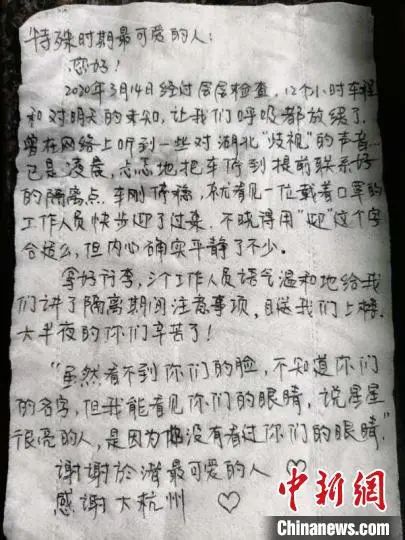 特殊时期最可爱的人：
您好！
2020年3月14日经过层层检查，12个小时车程
和对明天的未知，让我们呼吸都放缓了，
曾在网络上听到一些对湖北“歧视”的声音…
已是凌晨，忐忑地把车停到提前联系好
的隔离点，车刚停稳，就看见一位戴着口罩的
工作人员快步迎了过来，不晓得用“迎”这个字
合适么，但内心确实平静了不少。
拿好行李，工作人员语气温和地给我
们讲了隔离期间注意事项，目送我们上楼，
大半夜的你们辛苦了！
“虽然看不到你们的脸，不知道你们
的名字，但我能看见你们的眼睛，说星星
很亮的人，是因为没有看过你们的眼睛”
谢谢於潜最可爱的人 ♡
感谢大杭州 ♡
中新网
Chinanews.com